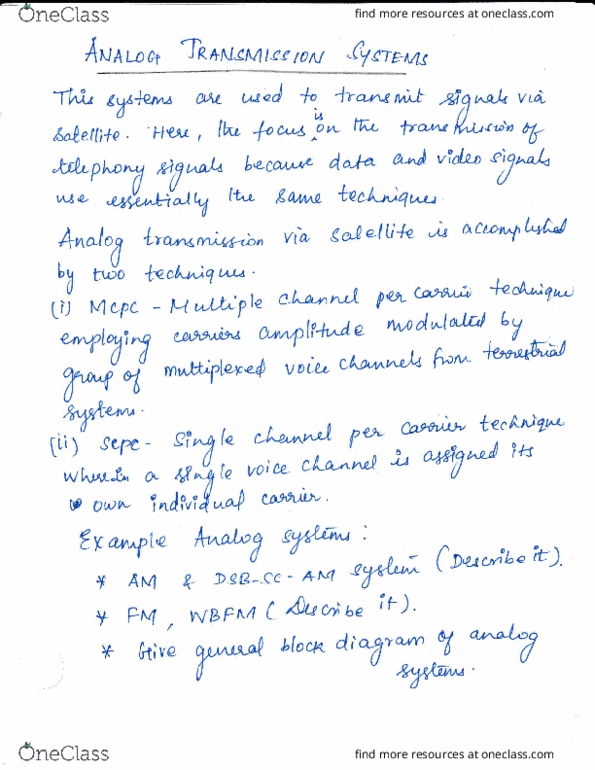 OneClass
find more resources at oneclass.com
ANALOG TRANSMISSION SYSTEMS
This systems are used to transmit signals via
satellite. Here, the focus is on the transmission of
telephony signals because data and video signals
use essentially the same techniques.
Analog transmission via satellite is accomplished
by two techniques.
(i) MCPC - Multiple channel per carrier technique
employing carriers amplitude modulated by
group of multiplexed voice channels from terrestrial
systems.
(ii) SCPC - Single channel per carrier technique
wherein a single voice channel is assigned its
own individual carrier.
Example Analog systems :
* AM & DSB-SC-AM system (Describe it).
* FM, WBFM (Describe it).
* Give general block diagram of analog
systems.
OneClass
find more resources at oneclass.com